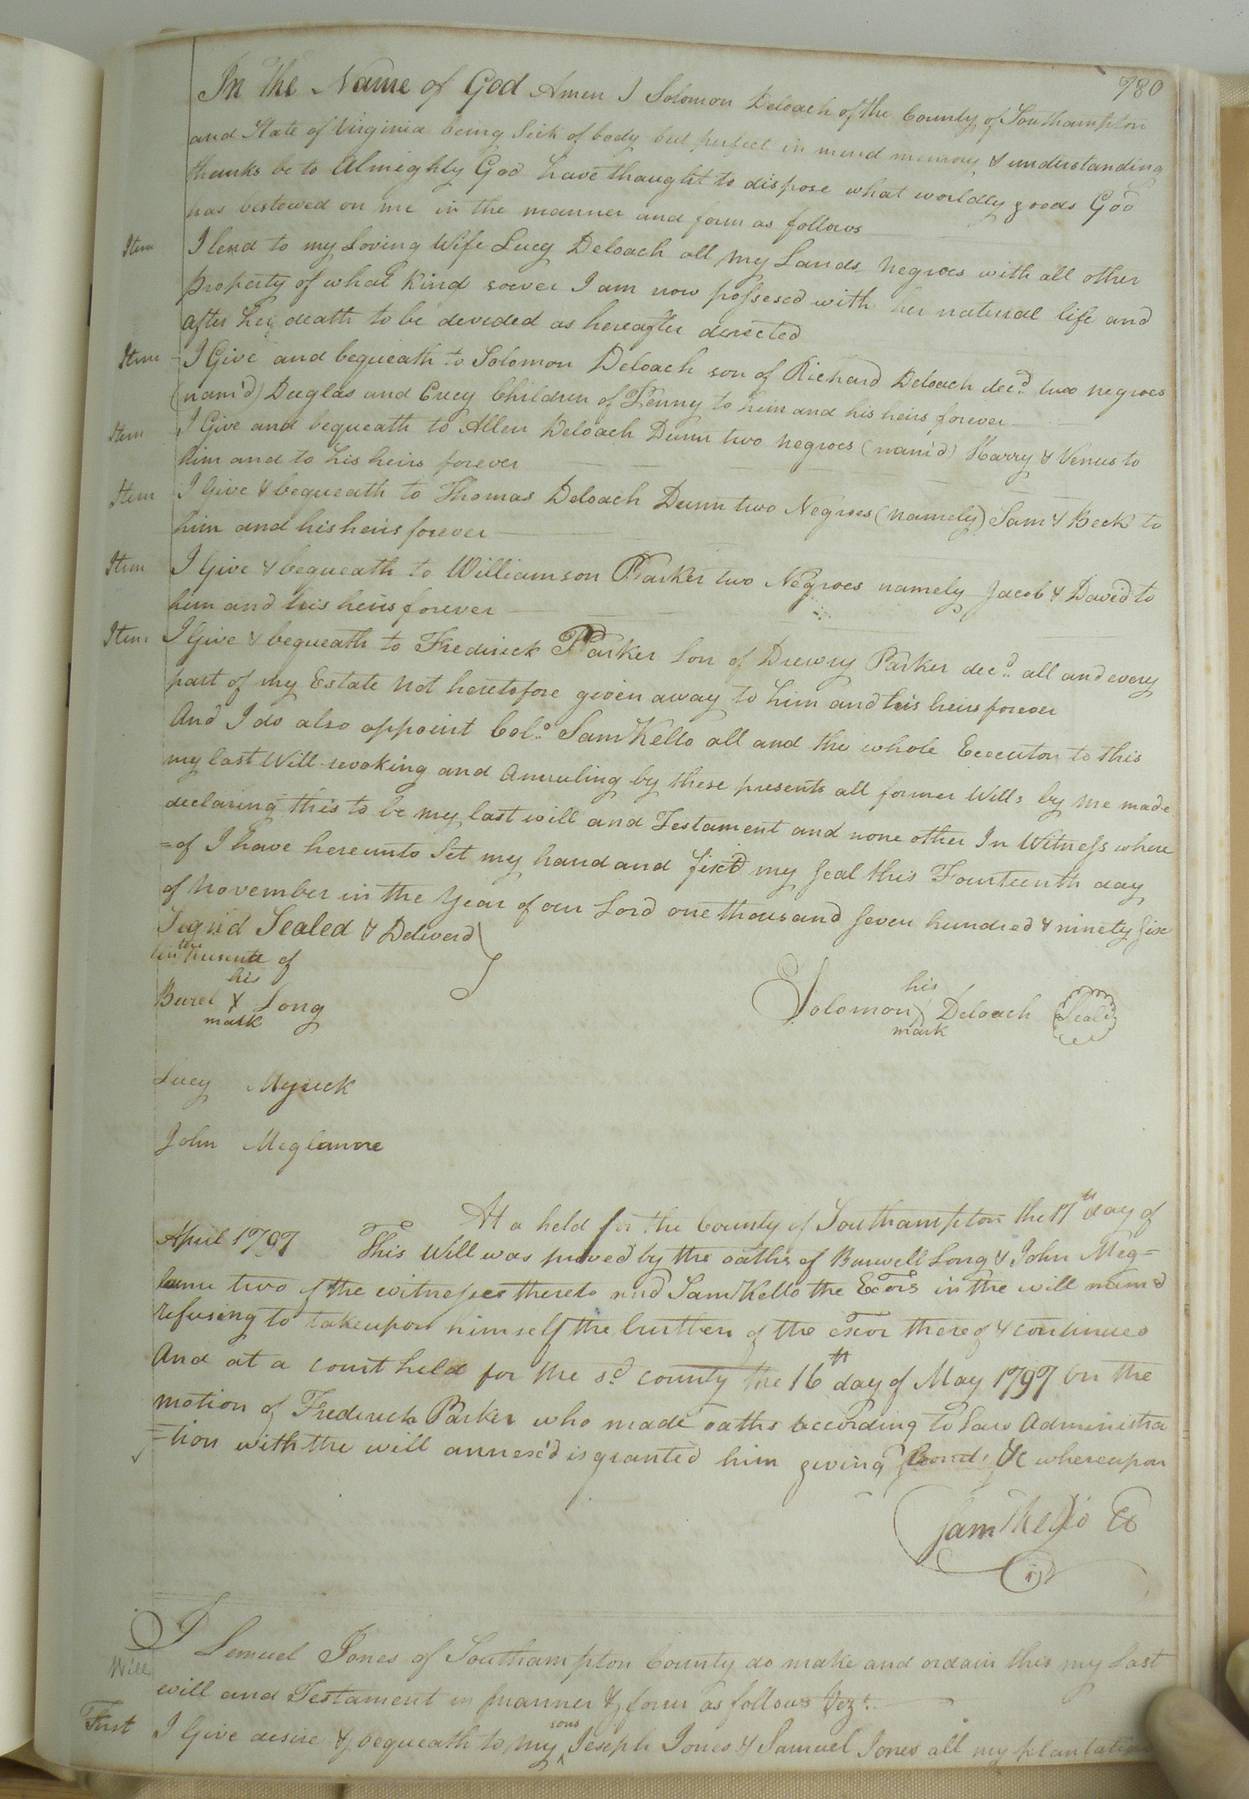 780
In the Name of God Amen I Solomon Deloach of the County of Southampton
and State of Virginia being Sick of body but perfect in mind memory & understanding
thanks be to Almighty God have thought to dispose what worldly goods God
has bestowed on me in the manner and form as follows
Item I lend to my Loving Wife Lucy Deloach all my Lands Negroes with all other
property of what Kind soever I am now possesed with her natural life and
after her death to be devided as hereafter derected
Item I Give and bequeath to Solomon Deloach son of Richard Deloach decd. two negroes
(nam'd) Duglas and Crecy Children of Fenny to him and his heirs forever
Item I Give and bequeath to Allen Deloach Dunn two negroes (nam'd) Harry & Venus to
him and to his heirs forever
Item I Give & bequeath to Thomas Deloach Dunn two Negroes (namely) Sam & Beck to
him and his heirs forever
Item I Give & bequeath to Williamson Parker two Negroes namely Jacob & David to
him and his heirs forever
Item I Give & bequeath to Frederick Parker Son of Drewry Parker decd. all and every
part of my Estate Not heretofore given away to him and his heirs forever
And I do also appoint Colo. Sam Kello all and the whole Executor to this
my last Will revoking and Annuling by these presents all former Wills by me made
declaring this to be my last will and Testament and none other In Witness where
=of I have hereunto Set my hand and fix'd my Seal this Fourteenth day
of November in the Year of our Lord one thousand Seven hundred & ninety Six
Sign'd Sealed & Deliverd
in the presents of
his
Burel X Long
mark
his
Solomon ) Deloach Seal
mark
Lucy Myrick
John Meglamre
At a held for the County of Southampton the 17th day of
April 1797 This Will was proved by the oaths of Burwell Long & John Meg=
lamre two of the witnesses thereto and Sam Kello the Exors in the will nam'd
refusing to take upon himself the burthen of the exor thereof & continued
And at a court held for the sd. county the 16th day of May 1797 On the
motion of Frederick Parker who made oaths according to Law Administra
=tion with the will annex'd is granted him giving bond, &c whereupon
Sam Kello CC
I Lemuel Jones of Southampton County do make and ordain this my Last
Will
will and Testament in manner & form as follows Vizt.
First I Give desire & bequeath to my sons Joseph Jones & Samuel Jones all my plantation